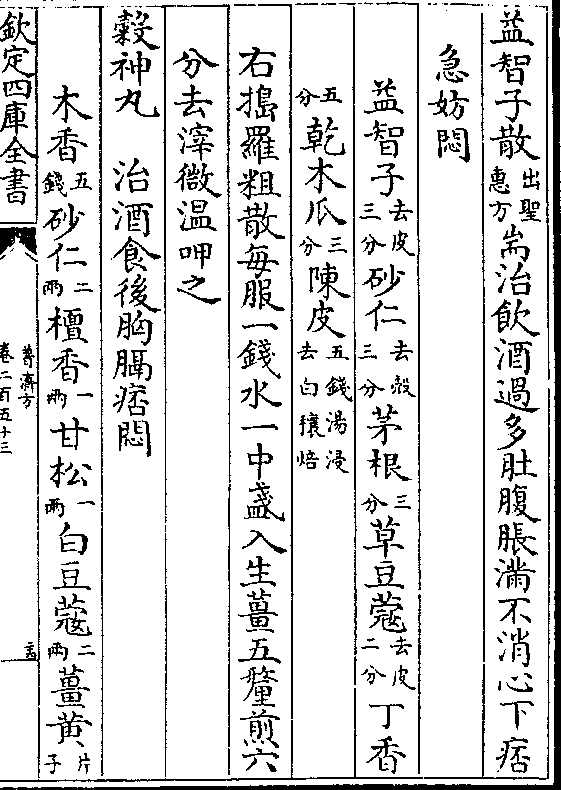 益智子散出聖惠方耑治飲酒過多肚腹脹滿不消心下痞
急妨悶
益智子去皮三分砂仁去殼三分茅根三分草豆蔻去皮二分丁香
五分乾木瓜三分陳皮五錢湯浸去白穰焙
右搗羅粗散每服一錢水一中盞入生薑五釐煎六
分去滓微温呷之
穀神丸　治酒食後胸膈痞悶
木香五錢砂仁二兩檀香一兩甘松一兩白豆蔻二兩薑黄片子
欽定四庫全書
普濟方
卷二百五十三